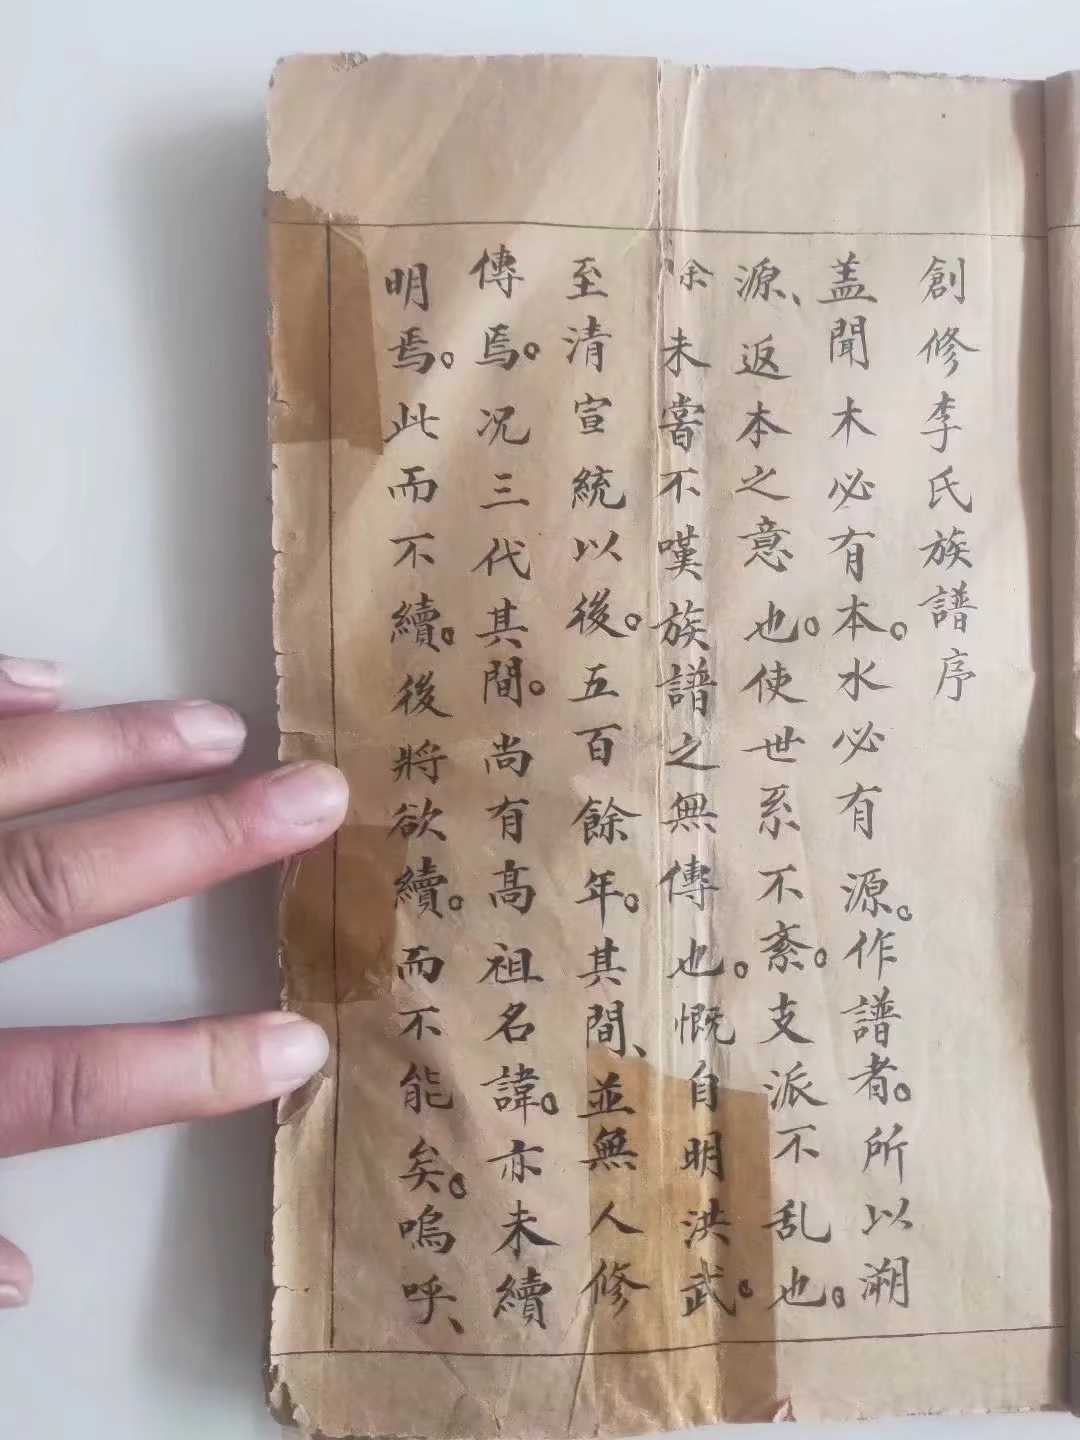 創修李氏族譜序
蓋聞木必有本。水必有源。作譜者。所以溯
源、返本之意也。使世系不紊。支派不乱也。
余未嘗不嘆族譜之無傳也。慨自明洪武。
至清宣統以後。五百餘年。其間、並無人修
傳焉。况三代其間。尚有高祖名諱。亦未續
明焉。此而不續。後將欲續。而不能矣。嗚呼、